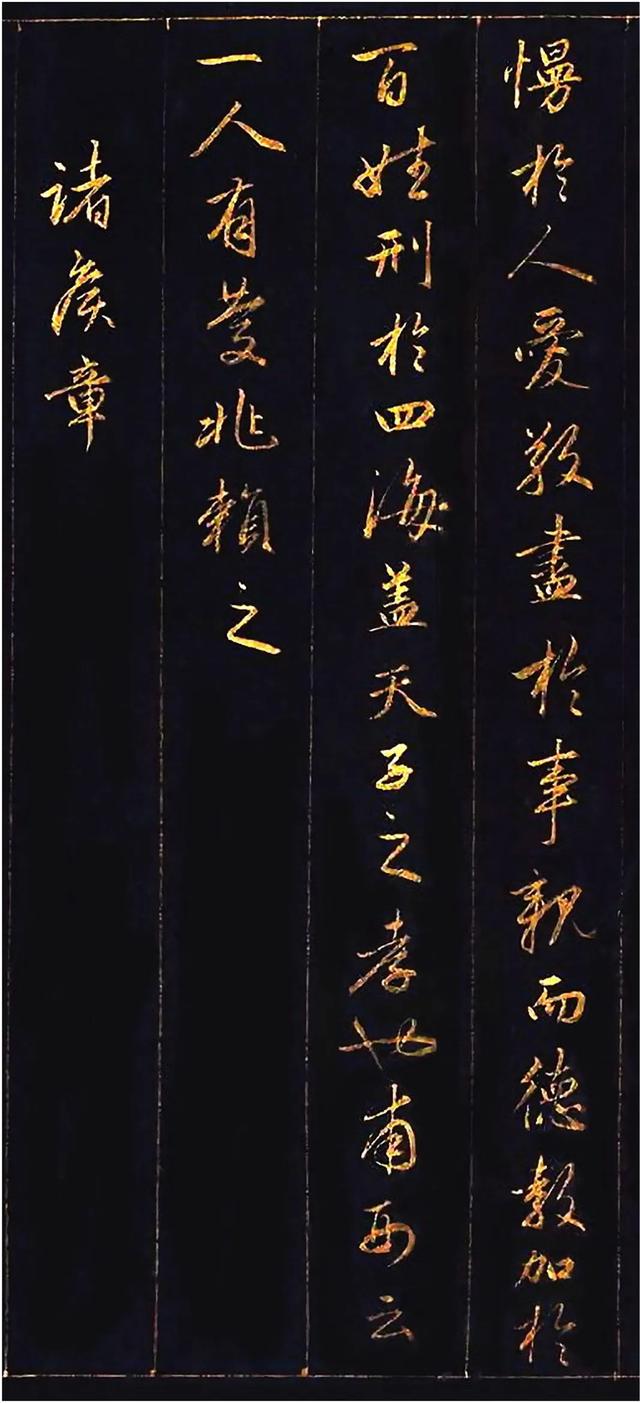 慢於人愛敬盡於事親而德教加於
百姓刑於四海盖天子之孝也甫云
一人有慶兆賴之
諸侯章